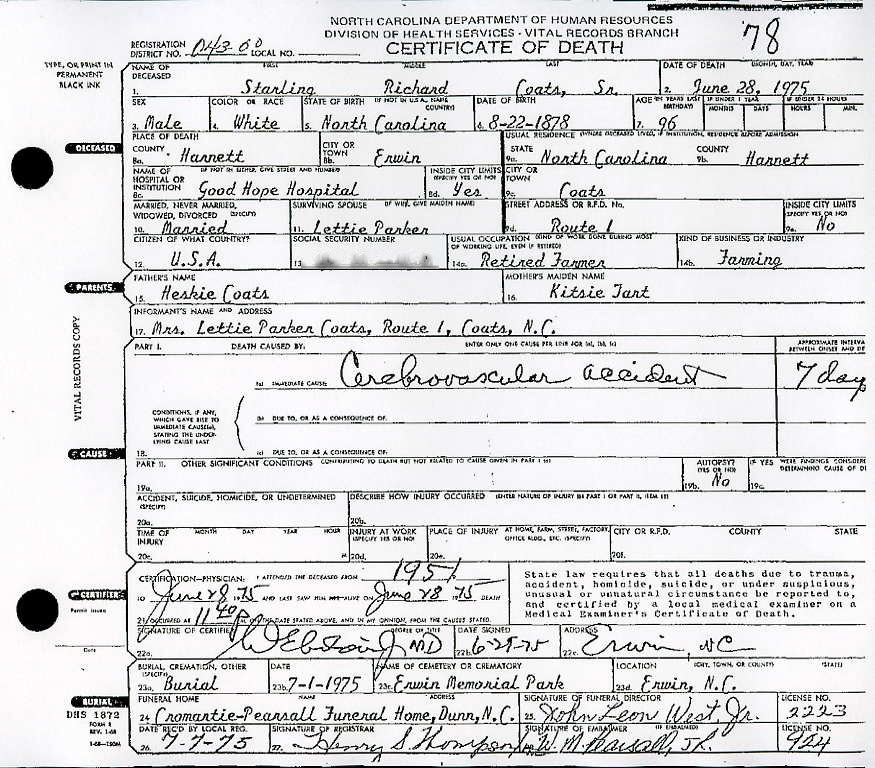 NORTH CAROLINA DEPARTMENT OF HUMAN RESOURCES
DIVISION OF HEALTH SERVICES - VITAL RECORDS BRANCH
CERTIFICATE OF DEATH
78
REGISTRATION DISTRICT NO. LOCAL NO.
TYPE, OR PRINT IN PERMANENT BLACK INK
NAME OF DECEASED FIRST MIDDLE LAST DATE OF DEATH (MONTH, DAY, YEAR)
1. Starling Richard Coats, Sr. 2. June 28, 1975
SEX COLOR OR RACE STATE OF BIRTH (IF NOT IN U.S.A., NAME COUNTRY) DATE OF BIRTH AGE (IN YEARS LAST BIRTHDAY) IF UNDER 1 YEAR MONTHS DAYS IF UNDER 24 HOURS HOURS MIN.
3. Male 4. White 5. North Carolina 6. 8-22-1878 7. 96
DECEASED
PLACE OF DEATH USUAL RESIDENCE (WHERE DECEASED LIVED, IF INSTITUTION, RESIDENCE BEFORE ADMISSION)
COUNTY CITY OR TOWN STATE COUNTY
8a. Harnett 8b. Erwin 9a. North Carolina 9b. Harnett
NAME OF HOSPITAL OR INSTITUTION (IF NOT IN EITHER, GIVE STREET AND NUMBER) INSIDE CITY LIMITS (SPECIFY YES OR NO) CITY OR TOWN
8c. Good Hope Hospital 8d. Yes 9c. Coats
MARRIED, NEVER MARRIED, WIDOWED, DIVORCED (SPECIFY) SURVIVING SPOUSE (IF WIFE, GIVE MAIDEN NAME) STREET ADDRESS OR R.F.D. No. INSIDE CITY LIMITS (SPECIFY YES OR NO)
10. Married 11. Lettie Parker 9d. Route 1 9e. No
CITIZEN OF WHAT COUNTRY? SOCIAL SECURITY NUMBER USUAL OCCUPATION (KIND OF WORK DONE DURING MOST OF WORKING LIFE, EVEN IF RETIRED) KIND OF BUSINESS OR INDUSTRY
12. U.S.A. 13. 14a. Retired Farmer 14b. Farming
PARENTS
FATHER'S NAME MOTHER'S MAIDEN NAME
15. Heskie Coats 16. Kitsie Tart
INFORMANT'S NAME AND ADDRESS
17. Mrs. Lettie Parker Coats, Route 1, Coats, N.C.
VITAL RECORDS COPY
PART I. DEATH CAUSED BY: ENTER ONLY ONE CAUSE PER LINE FOR (a), (b), (c) APPROXIMATE INTERVA BETWEEN ONSET AND DE
(a) IMMEDIATE CAUSE: Cerebrovascular accident 7 day
CONDITIONS, IF ANY, WHICH GAVE RISE TO IMMEDIATE CAUSE(a), STATING THE UNDERLYING CAUSE LAST
(b) DUE TO, OR AS A CONSEQUENCE OF.
CAUSE
18. (c) DUE TO, OR AS A CONSEQUENCE OF:
PART II. OTHER SIGNIFICANT CONDITIONS CONTRIBUTING TO DEATH BUT NOT RELATED TO CAUSE GIVEN IN PART I (a) AUTOPSY? (YES OR NO) IF YES WERE FINDINGS CONSIDERE DETERMINING CAUSE OF D
19a. 19b. No 19c.
ACCIDENT, SUICIDE, HOMICIDE, OR UNDETERMINED (SPECIFY) DESCRIBE HOW INJURY OCCURRED (ENTER NATURE OF INJURY IN PART I OR PART II, ITEM 18)
20a. 20b.
TIME OF INJURY MONTH DAY YEAR HOUR INJURY AT WORK (SPECIFY YES OR NO) PLACE OF INJURY AT HOME, FARM, STREET, FACTORY, OFFICE BLDG., ETC. (SPECIFY) CITY OR R.F.D. COUNTY STATE
20c. M 20d. 20e. 20f.
CERTIFIER
Permit Issued
Date
CERTIFICATION—PHYSICIAN: I ATTENDED THE DECEASED FROM 1951
TO June 28 1975 AND LAST SAW HIM ALIVE ON June 28 1975 DEATH
21. OCCURRED AT 11 40 P M. ON THE DATE STATED ABOVE, AND IN MY OPINION, FROM THE CAUSES STATED.
State law requires that all deaths due to trauma,
accident, homicide, suicide, or under suspicious,
unusual or unnatural circumstance be reported to,
and certified by a local medical examiner on a
Medical Examiner's Certificate of Death.
SIGNATURE OF CERTIFIER DEGREE OR TITLE DATE SIGNED ADDRESS
22a. MD 22b. 6-29-75 22c. Erwin, NC
BURIAL, CREMATION, OTHER (SPECIFY) DATE NAME OF CEMETERY OR CREMATORY LOCATION (CITY, TOWN, OR COUNTY) (STATE)
23a. Burial 23b. 7-1-1975 23c. Erwin Memorial Park 23d. Erwin, N.C.
BURIAL
FUNERAL HOME NAME ADDRESS SIGNATURE OF FUNERAL DIRECTOR LICENSE NO.
24. Cromartie-Pearsall Funeral Home, Dunn, N.C. 25. John Leon West, Jr. 2223
DHS 1872
FORM 8
REV. 1-68
DATE REC'D BY LOCAL REG. SIGNATURE OF REGISTRAR SIGNATURE OF EMBALMER (IF EMBALMED) LICENSE NO.
26. 7-7-75 27. Henry S. Thompson W. M. Pearsall, Jr. 924